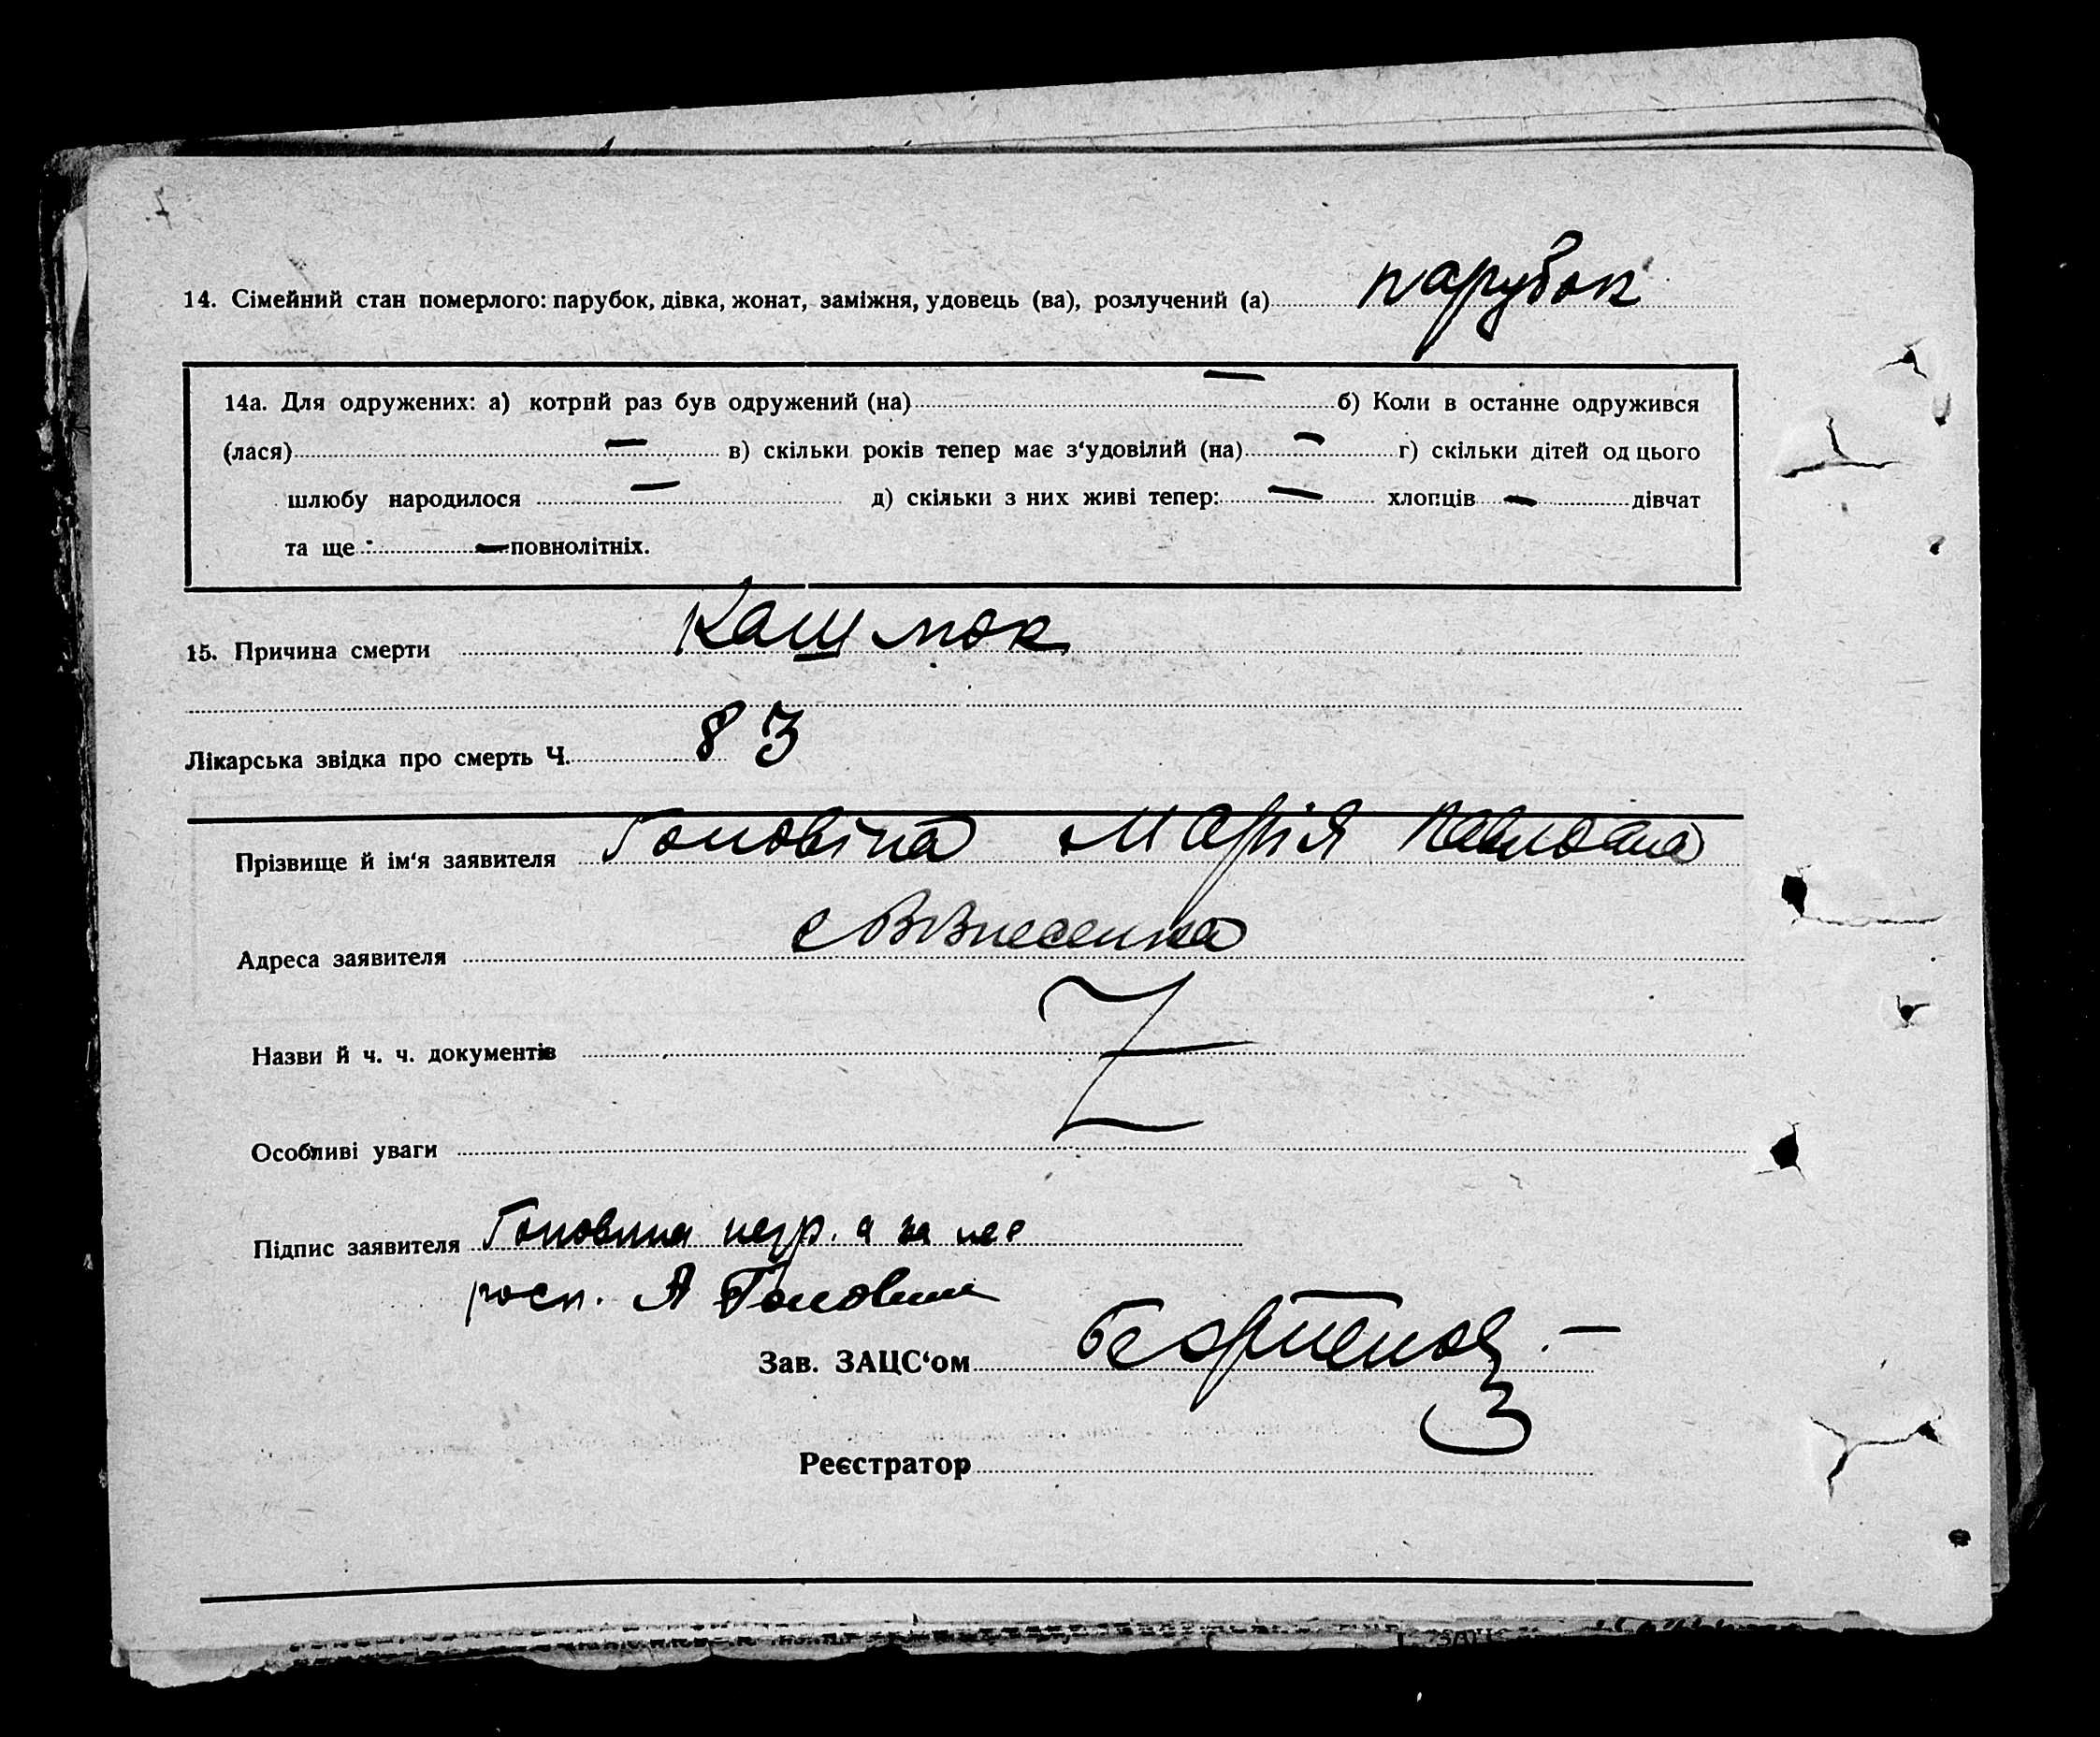 14. Сімейний стан померлого: парубок, дівка, жонат, заміжня, удовець (ва), розлучений (а) парубок
14а. Для одружених: а) котрий раз був одружений (на) — б) Коли в останнє одружився
(лася) — в) скільки років тепер має з‘удовілий (на) — г) скільки дітей од цього
шлюбу народилося — д) скільки з них живі тепер: — хлопців — дівчат
та ще — повнолітніх.
15. Причина смерти Кашлюк
Лікарська звідка про смерть Ч. 83
Прізвище й ім‘я заявителя Головіна Марія Павловна
Адреса заявителя с Вознесенка
Назви й ч. ч. документів
Особливі уваги
Підпис заявителя Головина негр. а за нее
росп. А Головин
Зав. ЗАЦС‘ом
Реєстратор